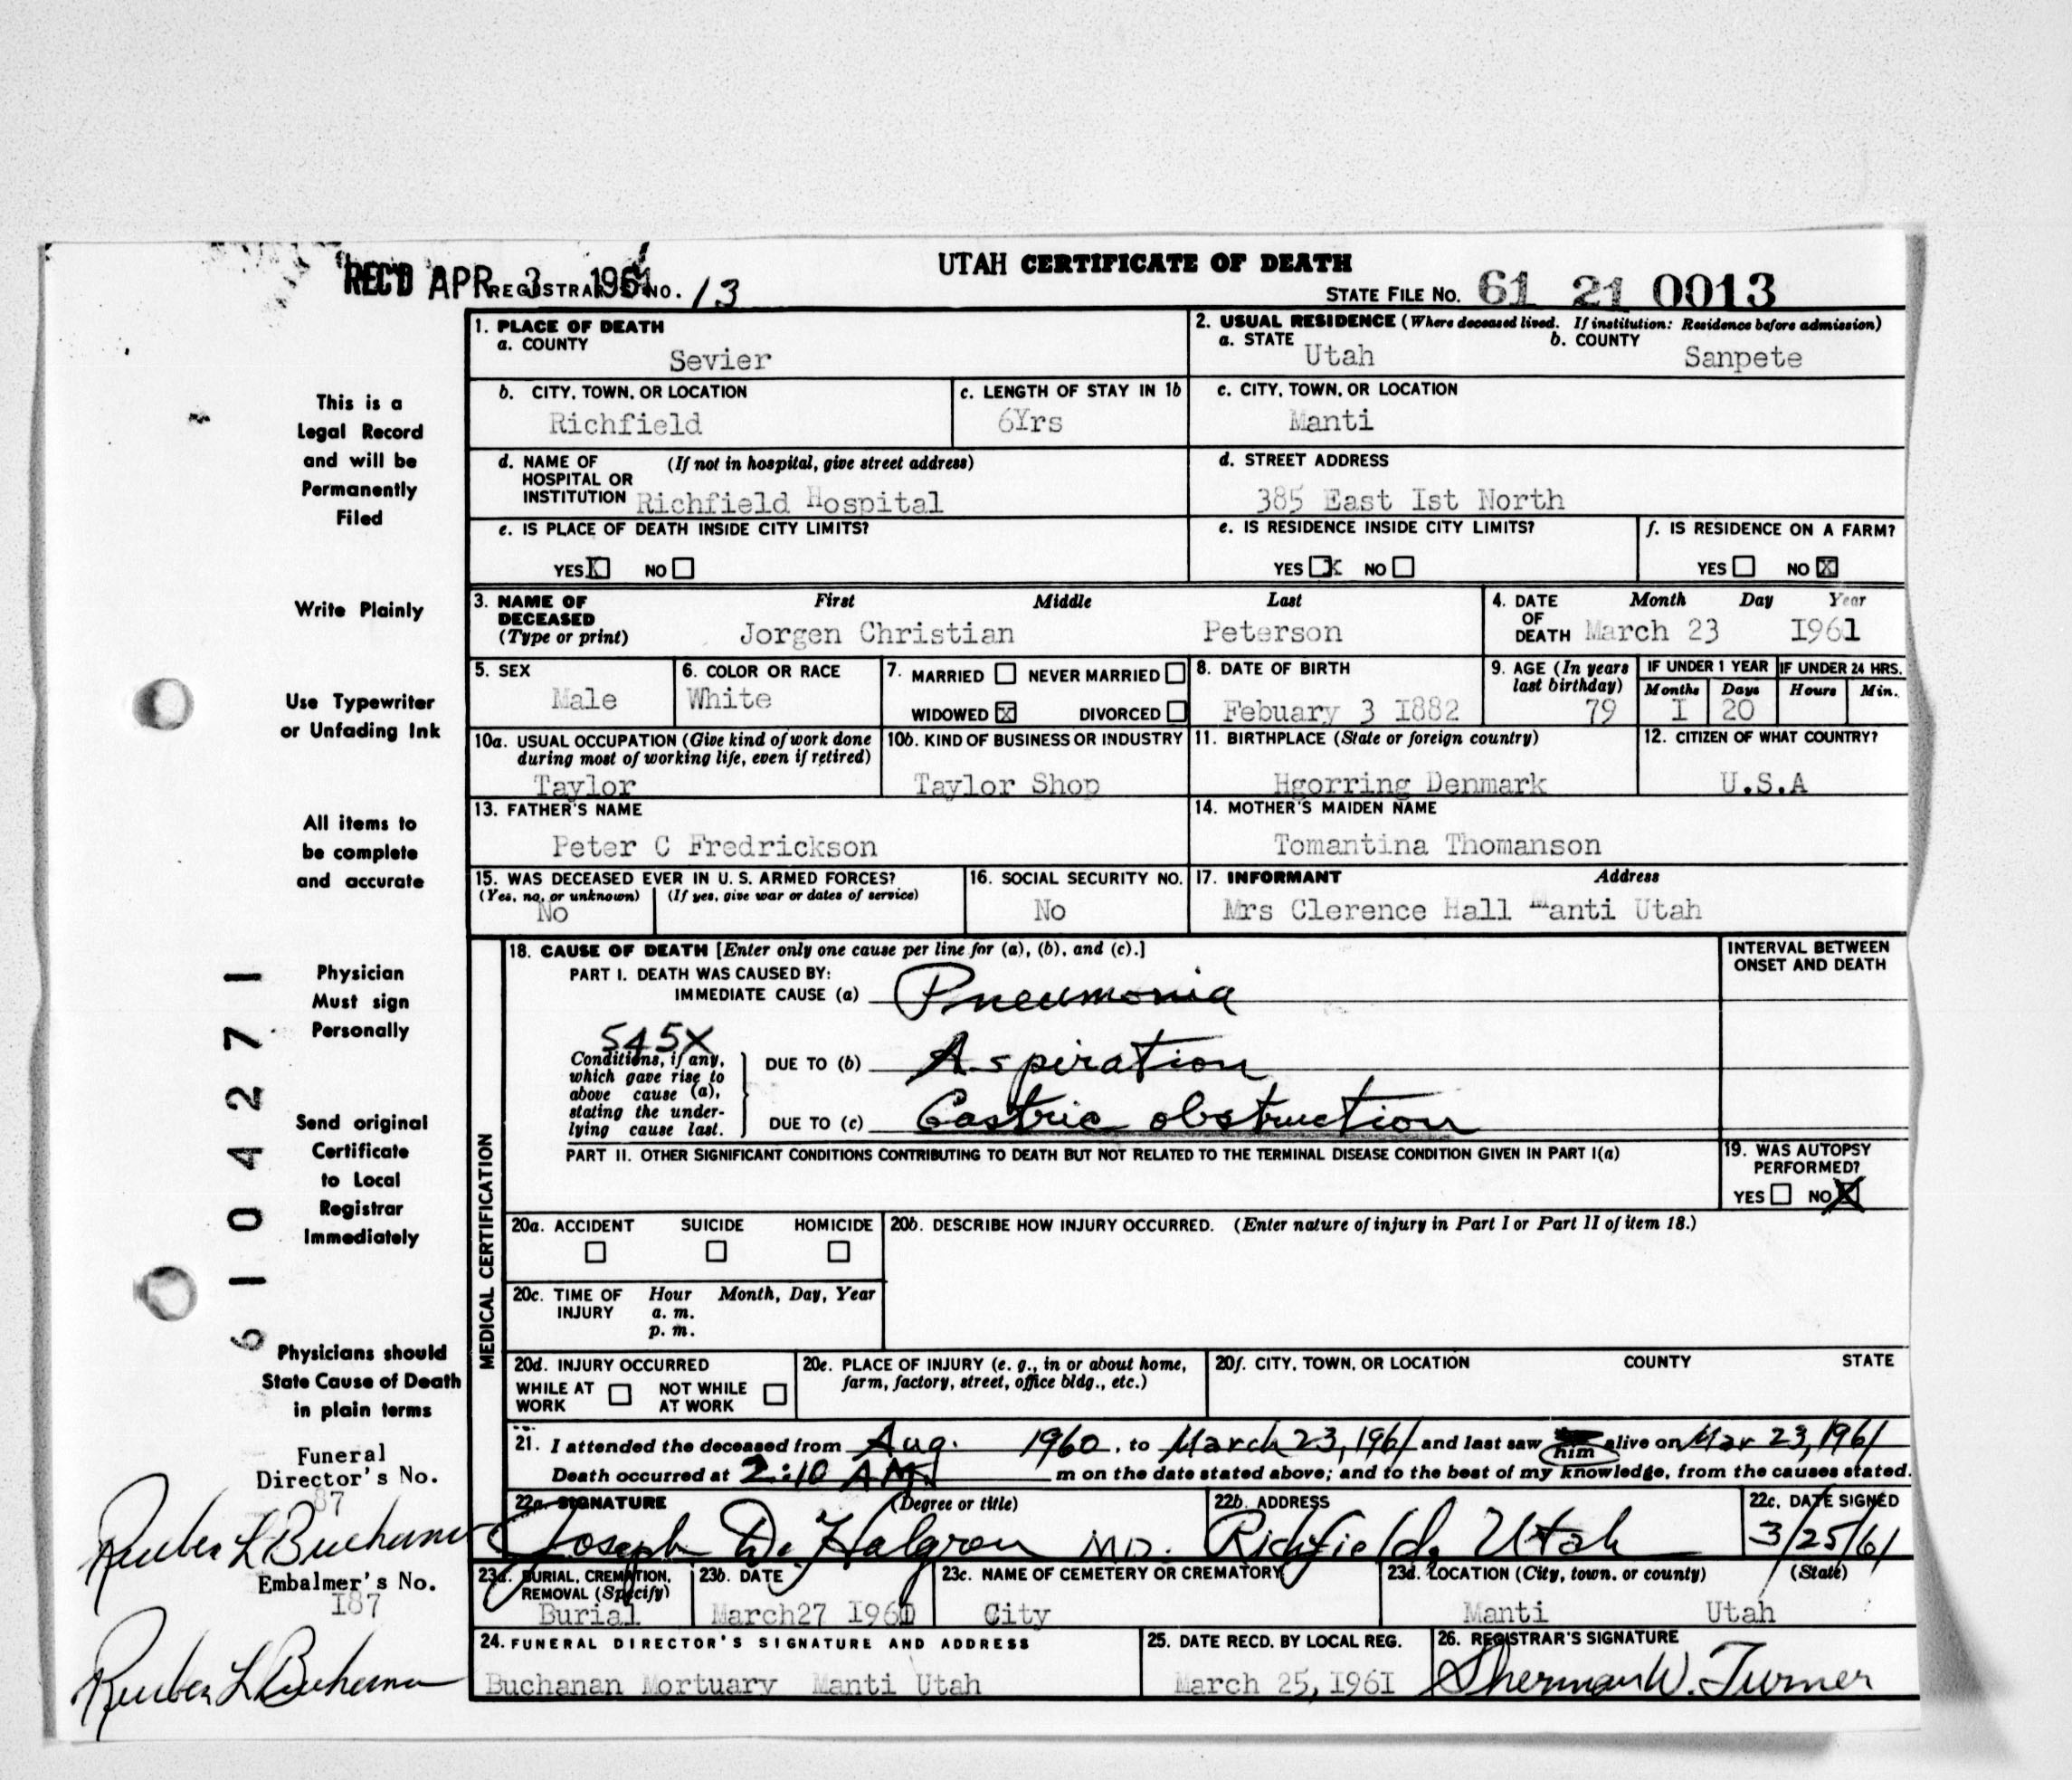 UTAH CERTIFICATE OF DEATH
REC'D APR 3 1961 REGISTRAR'S NO. 13
STATE FILE No. 61 21 0013
1. PLACE OF DEATH
a. COUNTY
Sevier
2. USUAL RESIDENCE (Where deceased lived. If institution: Residence before admission)
a. STATE Utah b. COUNTY Sanpete
b. CITY, TOWN, OR LOCATION
Richfield
c. LENGTH OF STAY IN 1b
6Yrs
c. CITY, TOWN, OR LOCATION
Manti
d. NAME OF HOSPITAL OR INSTITUTION (If not in hospital, give street address)
Richfield Hospital
d. STREET ADDRESS
385 East Ist North
e. IS PLACE OF DEATH INSIDE CITY LIMITS?
YES X NO
e. IS RESIDENCE INSIDE CITY LIMITS?
YES X NO
f. IS RESIDENCE ON A FARM?
YES NO X
3. NAME OF DECEASED (Type or print) First Middle Last
Jorgen Christian Peterson
4. DATE OF DEATH Month Day Year
March 23 I961
5. SEX
Male
6. COLOR OR RACE
White
7. MARRIED NEVER MARRIED
WIDOWED X DIVORCED
8. DATE OF BIRTH
Febuary 3 I882
9. AGE (In years last birthday)
79
IF UNDER 1 YEAR
Months Days
I 20
IF UNDER 24 HRS.
Hours Min.
10a. USUAL OCCUPATION (Give kind of work done during most of working life, even if retired)
Taylor
10b. KIND OF BUSINESS OR INDUSTRY
Taylor Shop
11. BIRTHPLACE (State or foreign country)
Hgorring Denmark
12. CITIZEN OF WHAT COUNTRY?
U.S.A
13. FATHER'S NAME
Peter C Fredrickson
14. MOTHER'S MAIDEN NAME
Tomantina Thomanson
15. WAS DECEASED EVER IN U. S. ARMED FORCES?
(Yes, no, or unknown) (If yes, give war or dates of service)
No
16. SOCIAL SECURITY NO.
No
17. INFORMANT Address
Mrs Clerence Hall Manti Utah
MEDICAL CERTIFICATION
18. CAUSE OF DEATH [Enter only one cause per line for (a), (b), and (c).]
INTERVAL BETWEEN ONSET AND DEATH
PART I. DEATH WAS CAUSED BY:
IMMEDIATE CAUSE (a) Pneumonia
545X
Conditions, if any, which gave rise to above cause (a), stating the underlying cause last.
DUE TO (b) Aspiration
DUE TO (c) Gastric obstruction
PART II. OTHER SIGNIFICANT CONDITIONS CONTRIBUTING TO DEATH BUT NOT RELATED TO THE TERMINAL DISEASE CONDITION GIVEN IN PART I(a)
19. WAS AUTOPSY PERFORMED?
YES NO X
20a. ACCIDENT SUICIDE HOMICIDE
20b. DESCRIBE HOW INJURY OCCURRED. (Enter nature of injury in Part I or Part II of item 18.)
20c. TIME OF INJURY Hour Month, Day, Year
a. m.
p. m.
20d. INJURY OCCURRED
WHILE AT WORK NOT WHILE AT WORK
20e. PLACE OF INJURY (e. g., in or about home, farm, factory, street, office bldg., etc.)
20f. CITY, TOWN, OR LOCATION COUNTY STATE
21. I attended the deceased from Aug. 1960, to March 23, 1961 and last saw him alive on Mar 23, 1961
Death occurred at 2:10 AM. m on the date stated above; and to the best of my knowledge, from the causes stated.
22a. SIGNATURE (Degree or title)
Joseph D. Halgren MD.
22b. ADDRESS
Richfield, Utah
22c. DATE SIGNED
3/25/61
23a. BURIAL, CREMATION, REMOVAL (Specify)
Burial
23b. DATE
March27 I961
23c. NAME OF CEMETERY OR CREMATORY
City
23d. LOCATION (City, town, or county) (State)
Manti Utah
24. FUNERAL DIRECTOR'S SIGNATURE AND ADDRESS
Buchanan Mortuary Manti Utah
25. DATE RECD. BY LOCAL REG.
March 25, I961
26. REGISTRAR'S SIGNATURE
Sherman W. Turner
This is a
Legal Record
and will be
Permanently
Filed
Write Plainly
Use Typewriter
or Unfading Ink
All items to
be complete
and accurate
Physician
Must sign
Personally
Send original
Certificate
to Local
Registrar
Immediately
Physicians should
State Cause of Death
in plain terms
Funeral
Director's No.
87
Reuben L Buchanan
Embalmer's No.
I87
Reuben L Buchanan
6104271